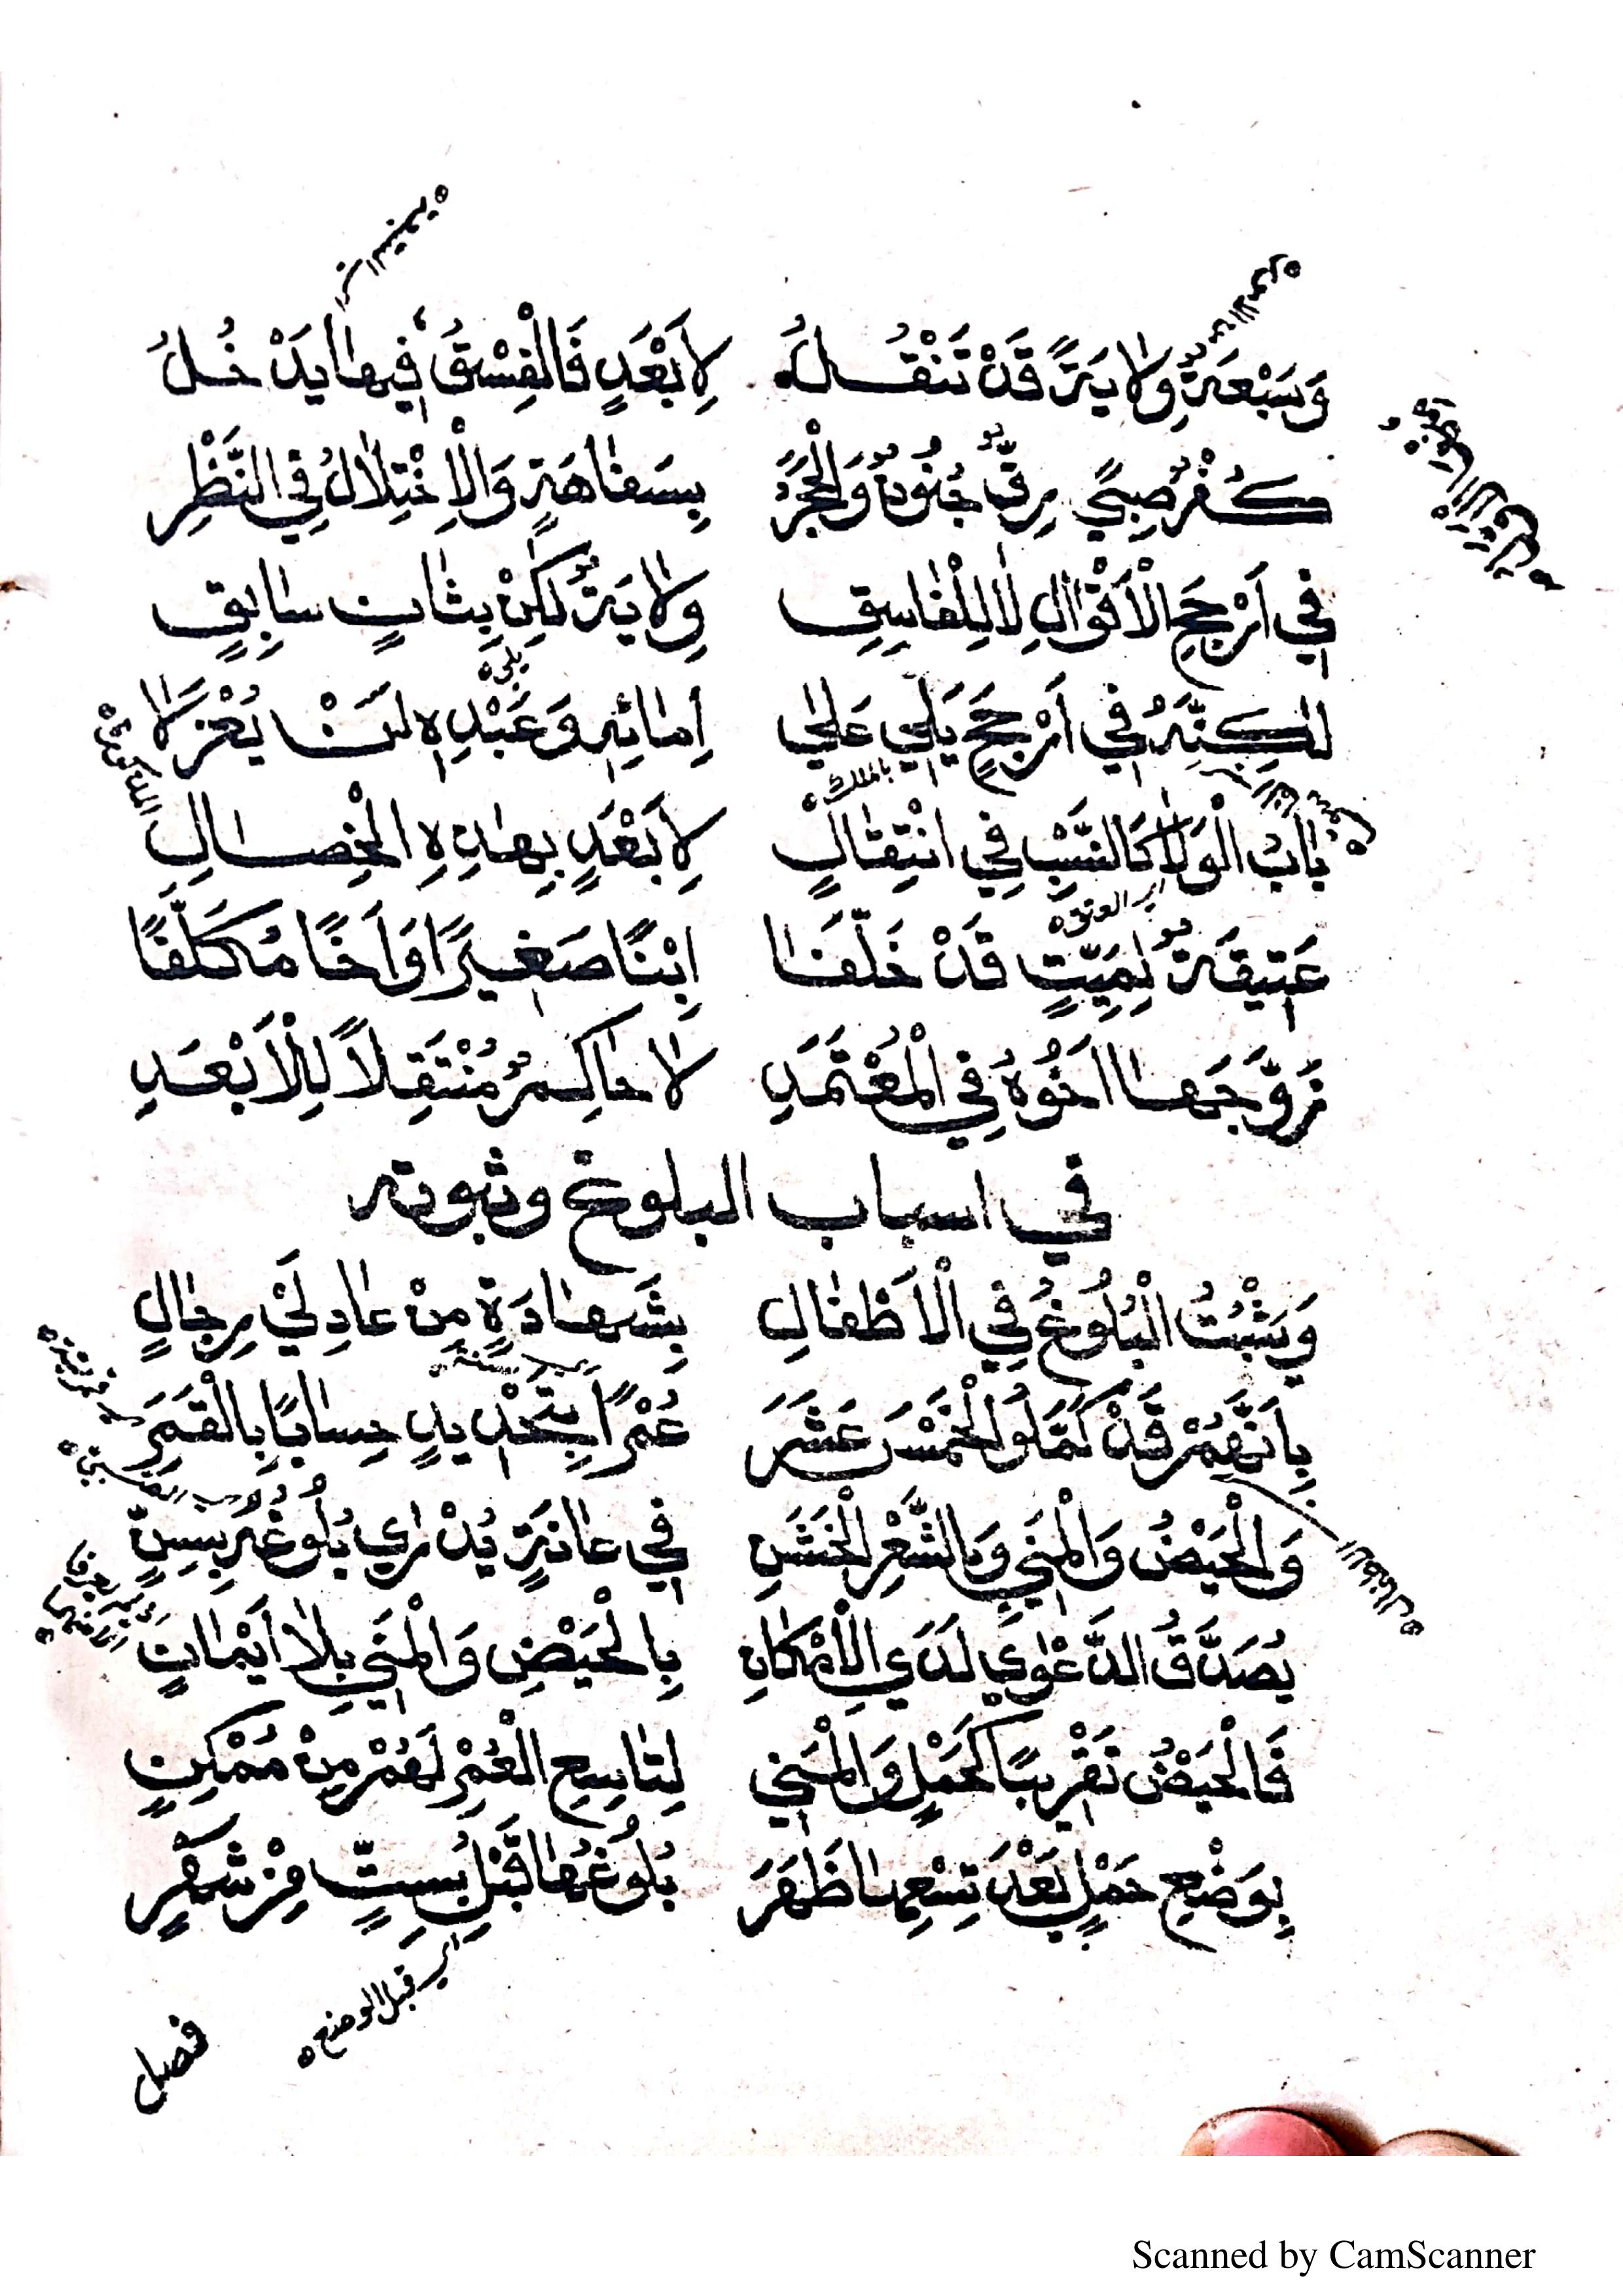 وَسَبْعَةٌ وِلَايَةً قَدْ تَنْقُلُ لِأَبْعَدٍ فَالْفِسْقُ فِيهَا يَدْخُلُ
كُفْرٌ صِبًى رِقٌّ جُنُونٌ وَالْحَجْرُ بِسَفَاهَةٍ وَالْاِخْتِلَالُ فِي النَّظْرِ
فِي أَرْجَحِ الْأَقْوَالِ لَا لِلْفَاسِقِ وِلَايَةٌ لَكِنْ بِثَانٍ سَابِقٍ
لَكِنَّهُ فِي أَرْجَحٍ يَلِي عَلَى إِمَائِهِ وَعَبْدِهِ لَنْ يُعْزَلَا
بلي
بالملك
بَابُ الْوَلَا كَالنَّسَبِ فِي انْتِقَالٍ لِأَبْعَدٍ بِهَذِهِ الْخِصَالِ
عَتِيقَةٌ لِمَيِّتٍ قَدْ خَلَّفَا اِبْنًا صَغِيرًا وَأَخًا مُكَلَّفًا
زَوَّجَهَا أَخُوهُ فِي الْمُعْتَمَدِ لَا حَاكِمٌ مُنْتَقِلًا لِلْأَبْعَدِ
في اسباب البلوغ وثبوته
وَيَثْبُتُ الْبُلُوغُ فِي الْأَطْفَالِ بِشَهَادَةٍ مِنْ عَادِلَيْ رِجَالٍ
بِأَنَّهُمْ قَدْ كَمَّلُوا الْخَمْسَ عَشَرَ عُمْرًا بِتَحْدِيدٍ حِسَابًا بِالْقَمَرِ
وَالْحَيْضُ وَالْمَنِي وَبِالشَّعْرِ الْخَشِنِ فِي عَانَةٍ يُدْرَى بُلُوغُهُ بِسِنٍّ
يُصَدَّقُ الدَّعْوَى لَدَى الْأِمْكَانِ بِالْحَيْضِ وَالْمَنِي بِلَا أَيْمَانٍ
فَالْحَيْضُ تَقْرِيبًا كَحَمْلٍ وَالْمَنِي لِتَاسِعِ الْعُمْرِ لَهُمْ مِنْ مُمْكِنٍ
بِوَضْعِ حَمْلٍ بَعْدَ تِسْعِهَا ظَهَرَ بُلُوغُهَا قَبْلُ بِسِتٍّ مِنْ شَهْرٍ
اي قبل الوضع
فصل
Scanned by CamScanner